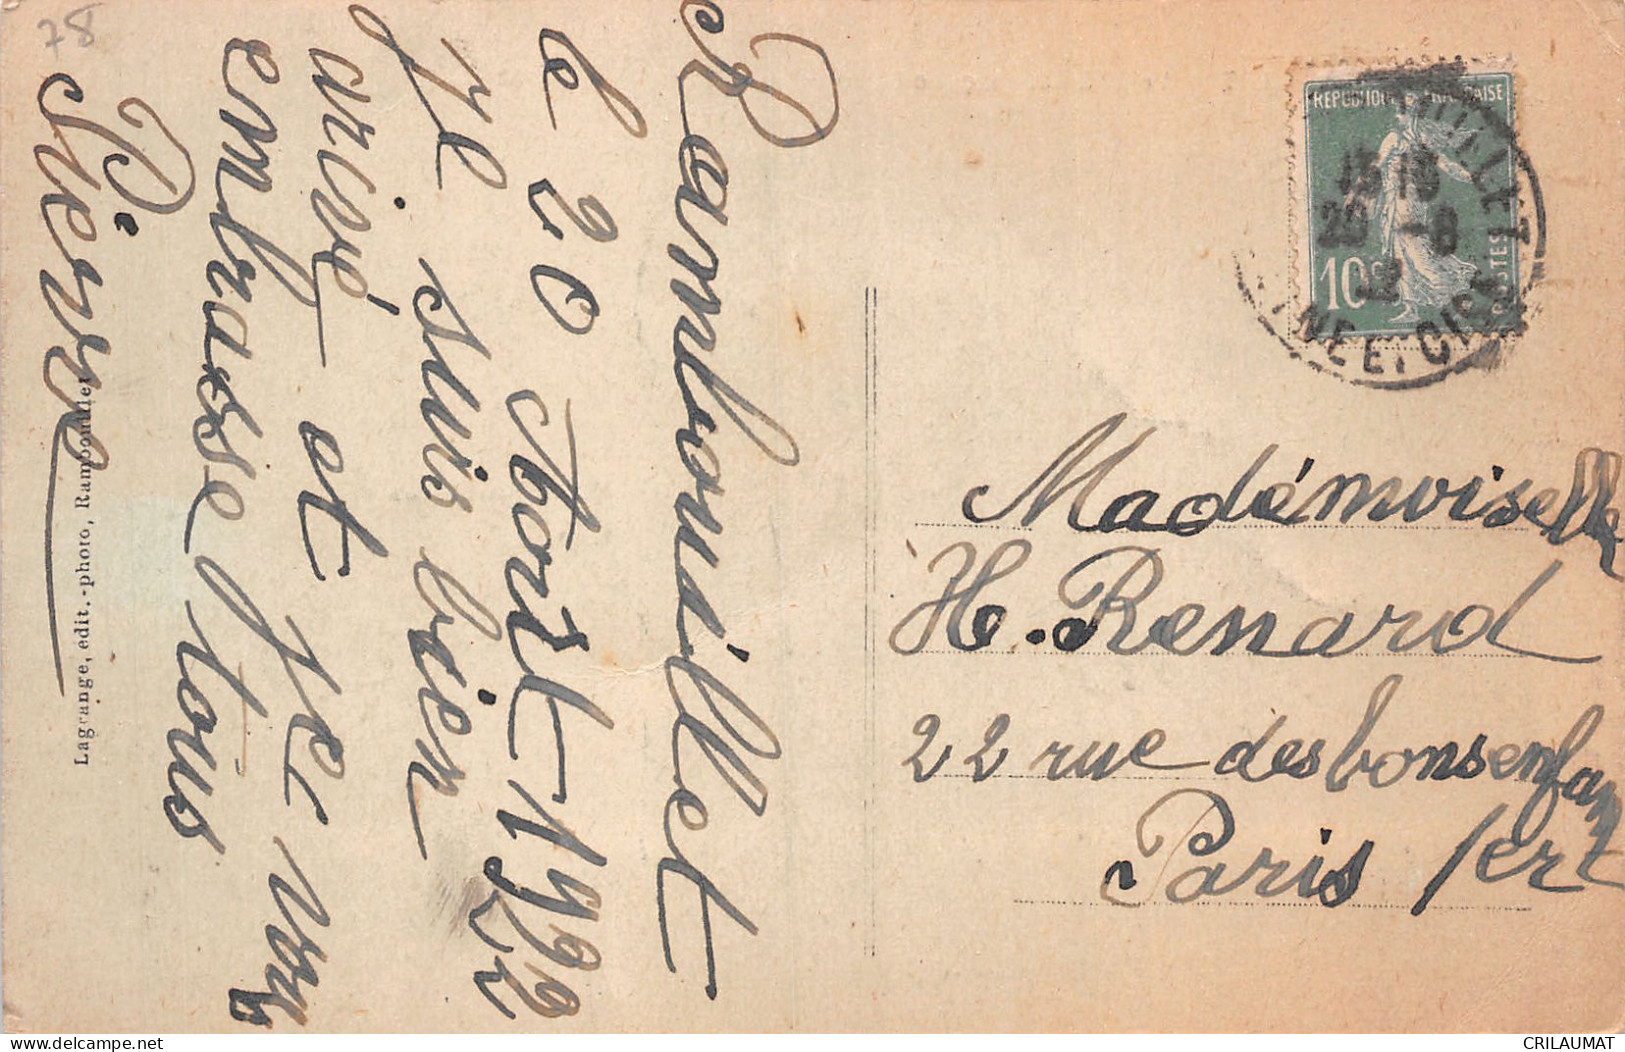 78
Rambouillet
le 20 Aout 1922
Je suis bien
arivé et je vous
embrasse tous
Pierre
Lagrange, édit.-photo, Rambouillet
REPUBLIQUE FRANÇAISE
POSTES
10c
15 15
20 -8
22
INE ET OIS
Madémoiselle
H. Renard
22 rue des bons enfants
Paris 1er
www.delcampe.net
CRILAUMAT